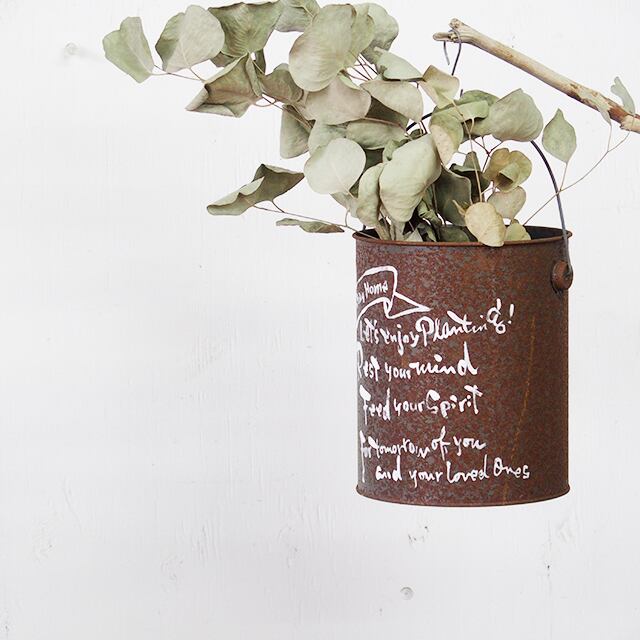 Home
Let's enjoy Planting!
Rest your mind
Feed your Spirit
For tomorrow of you
and your loved Ones